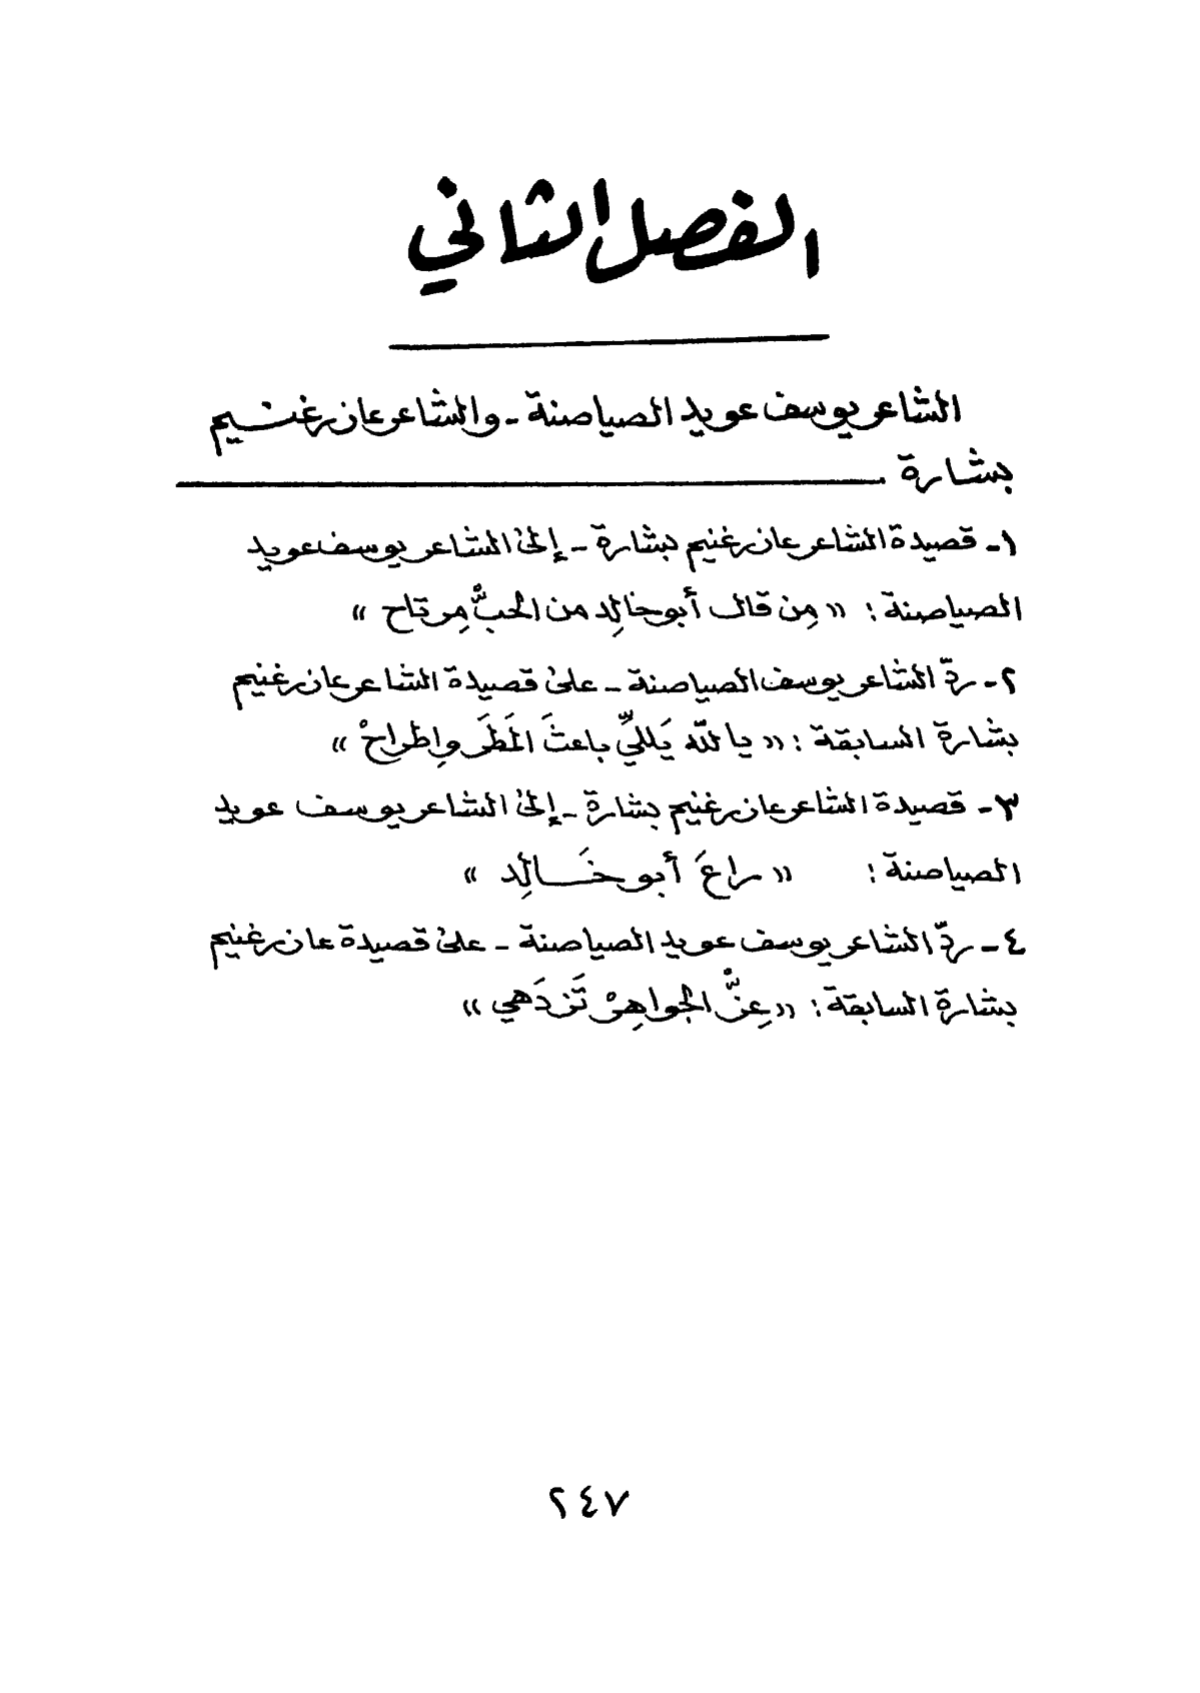 الفصل الثاني
الشاعر يوسف عويد الصياصنة - والشاعر عازر غنيم
بشارة
١- قصيدة الشاعر عازر غنيم بشارة - إلى الشاعر يوسف عويد
الصياصنة : « مِن قال أبو خالِد من الحبِّ مِرتاح »
٢- ردّ الشاعر يوسف الصياصنة - على قصيدة الشاعر عازر غنيم
بشارة السابقة : « يا لله يَللّي باعثَ المَطَر واِطراحْ »
٣- قصيدة الشاعر عازر غنيم بشارة - إلى الشاعر يوسف عويد
الصياصنة : « راعَ أبو خَالِد »
٤- ردّ الشاعر يوسف عويد الصياصنة - على قصيدة عازر غنيم
بشارة السابقة : « عِزّ الجواهِرْ تَزدَهي »
٢٤٧